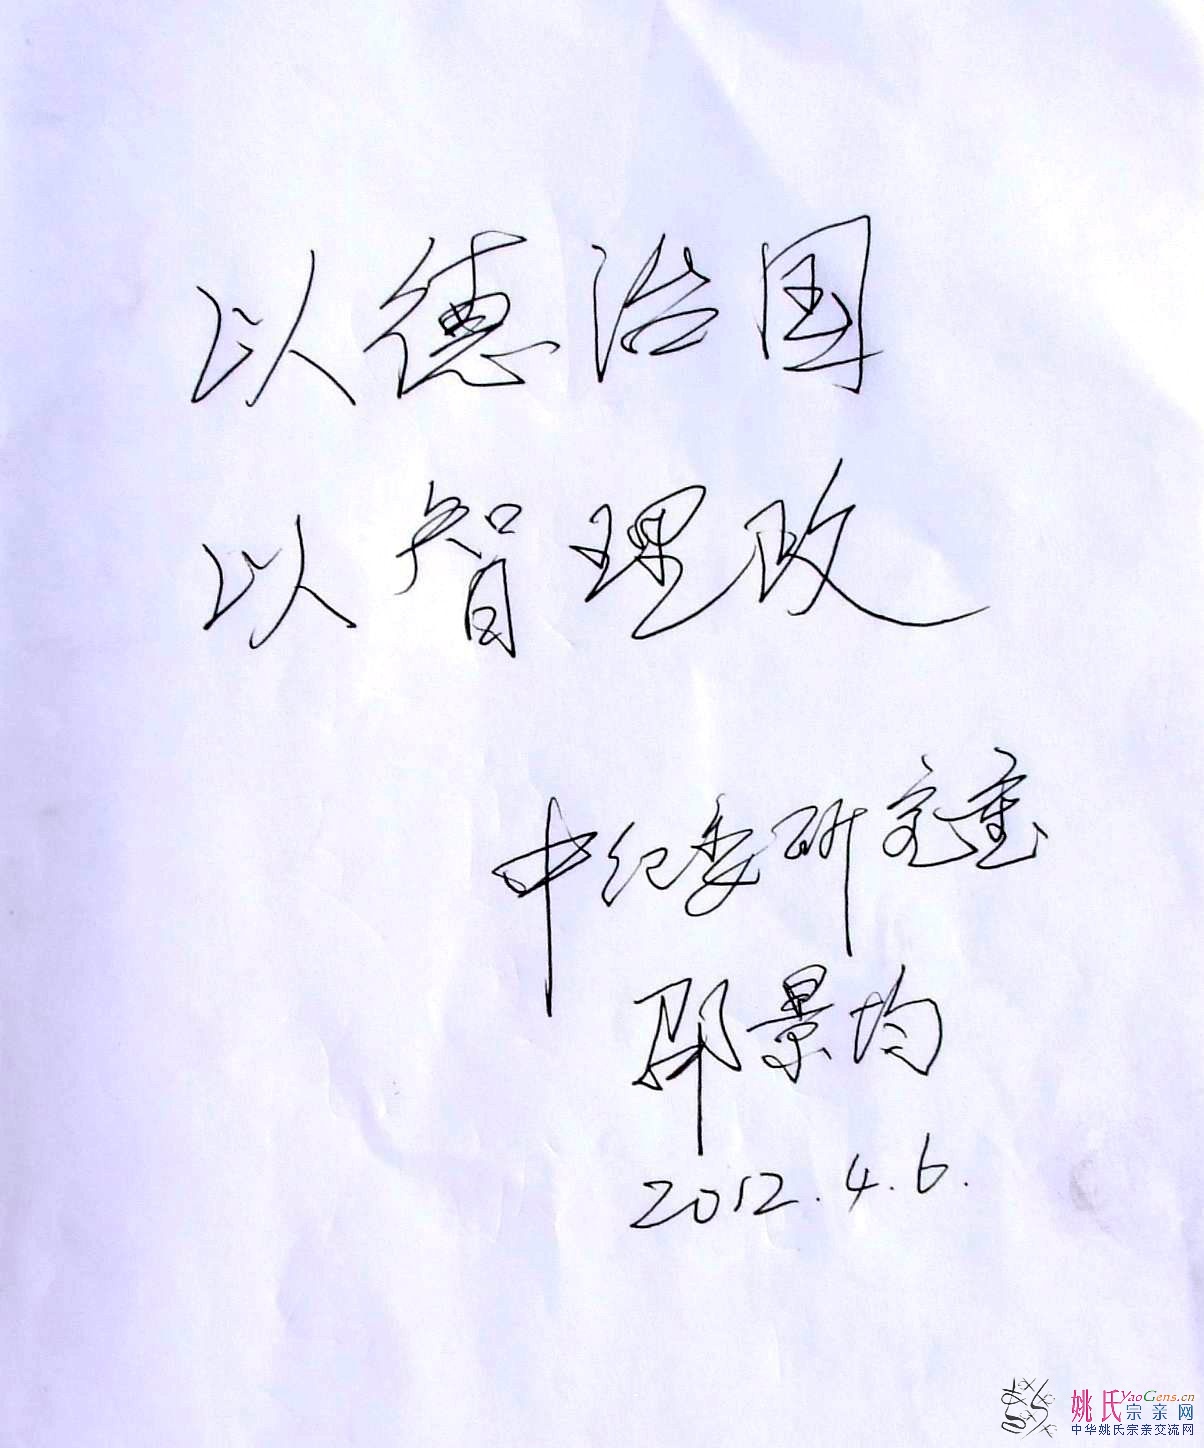 以德治国
以智理政
中纪委研究室
邵景均
2012.4.6.
姚氏 YaoGens.cn
宗亲网
中华姚氏宗亲交流网